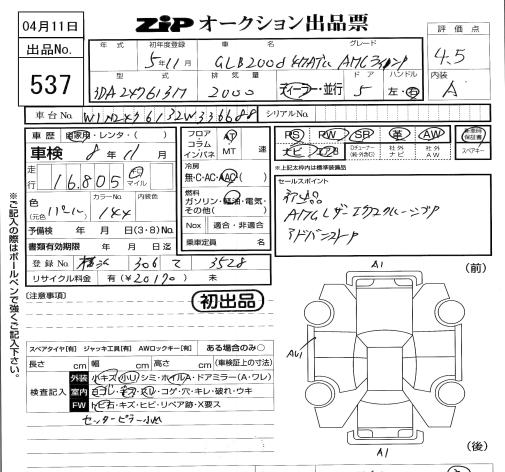 04月11日
ZIP オークション出品票
出品No.
537
年式 初年度登録 車名 グレード
5年11月 GLB200d 4MATIC AMGライン
型式 排気量 ドア ハンドル
3DA247613M 2000 ディーラー・並行 5 左・右
評価点
4.5
内装
A
車台No W1N2476132W336688 シリアルNo.
車歴 自家用・レンタ・( )
車検 8年11月
走行 16,805 km マイル
色 (元色 ) カラーNo. 144 内装色
予備検 年 月 日(3・8)No.
書類有効期限 年 月 日迄
登録No 横浜 306 て 3528
リサイクル料金 有(¥20170) 未
フロア コラム インパネ AT MT 速
冷房 無・C・AC・AAC
燃料 ガソリン・軽油・電気・その他( )
Nox 適合・非適合
乗車定員 名
PS PW SR 革 AW
ナビ エアB Dチューナー(純・外含む) 社外ナビ 社外AW
新車時保証書
スペアキー
*上記太枠内は標準装備品
セールスポイント
初出品
AMGレザーエクスクルーシブP
アドバンストP
(注意事項)
初出品
スペアタイヤ[有] ジャッキ工具[有] AWロックキー[有] ある場合のみ○
長さ cm 幅 cm 高さ cm (車検証上の寸法)
検査記入
外装 小キズ・小U・シミ・ホイルA・ドアミラー(A・ワレ)
室内 ヨゴレ・キズ・スレ・コゲ・穴・キレ・破れ・ウキ
FW トビ石・キズ・ヒビ・リペア跡・X要ス
センターピラー小凹
A1
(前)
AU1
A1
(後)
※ご記入の際はボールペンで強くご記入下さい。